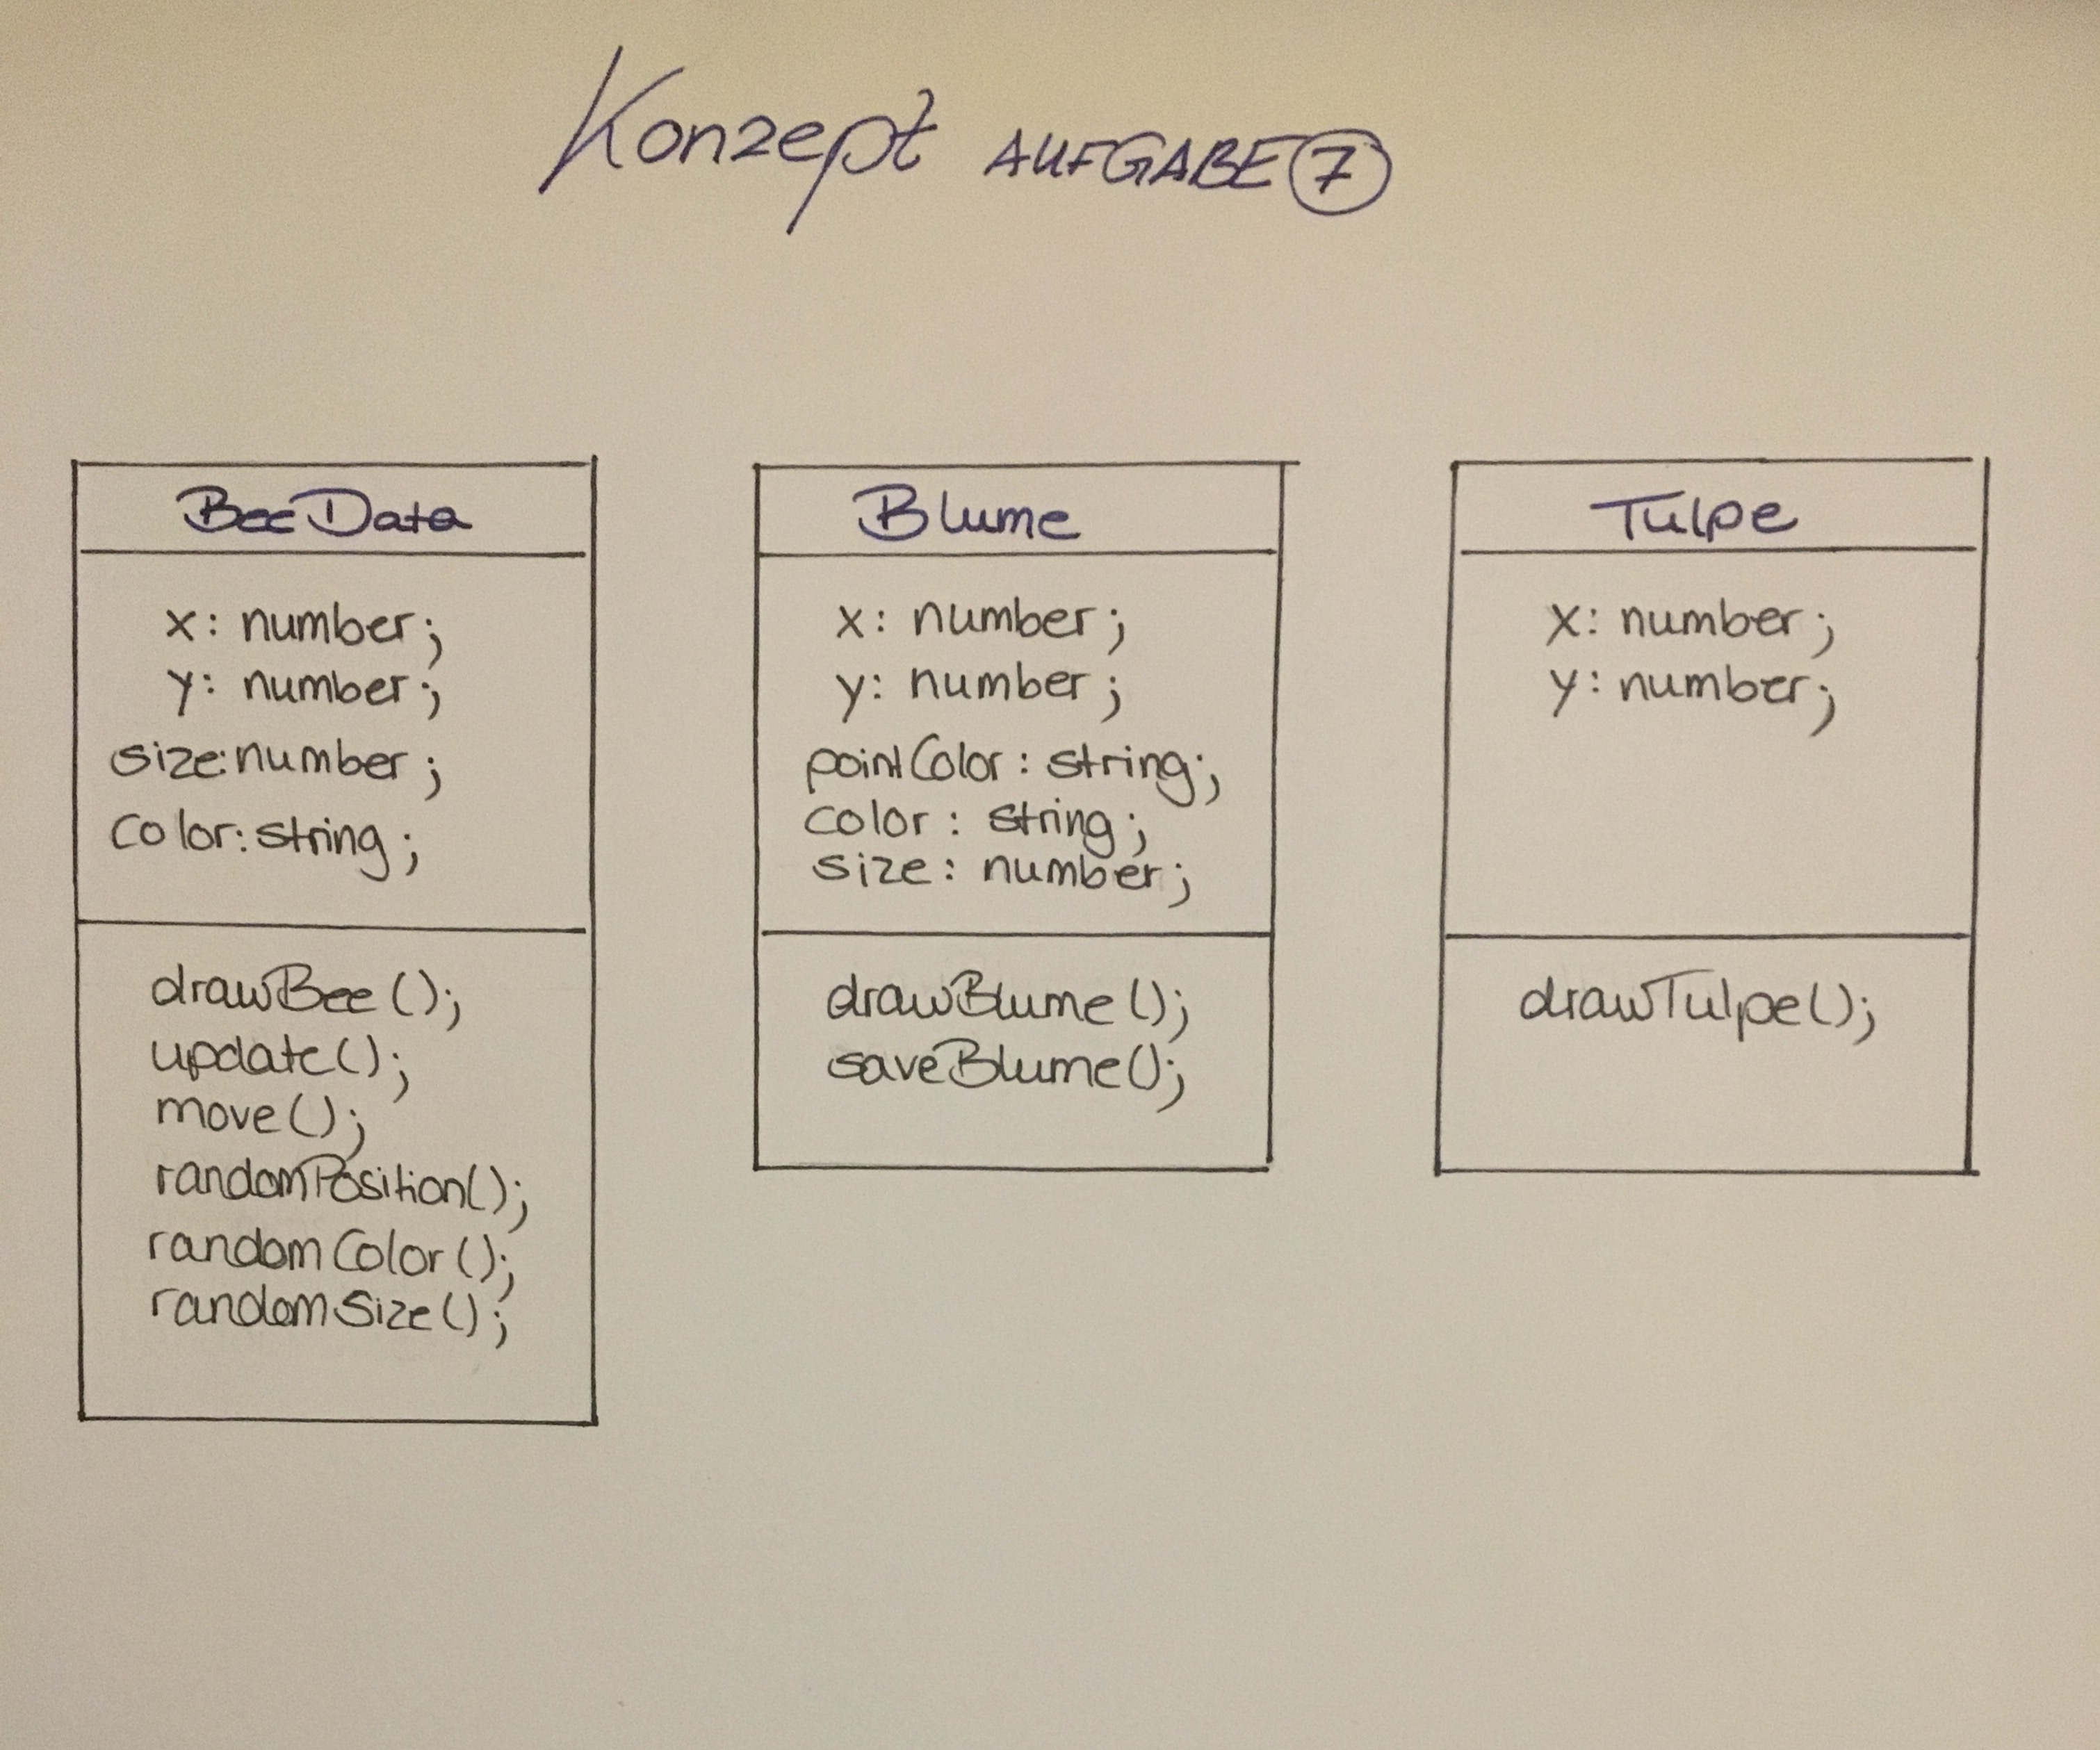 Konzept AUFGABE 7
BeeData
x: number;
y: number;
size: number;
color: string;
drawBee();
update();
move();
randomPosition();
randomColor();
randomSize();
Blume
x: number;
y: number;
pointColor: string;
color: string;
size: number;
drawBlume();
saveBlume();
Tulpe
x: number;
y: number;
drawTulpe();